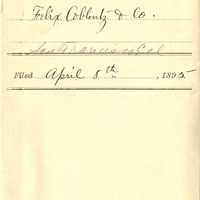 Felix Coblentz & Co.
San Francisco Cal
Filed April 8th, 1895.